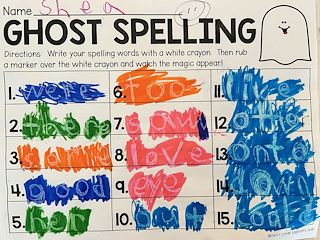 Name Shea
GHOST SPELLING
Directions: Write your spelling words with a white crayon. Then rub
a marker over the white crayon and watch the magic appear!
1. were
2. there
3.
4. good
5. her
6. too
7. saw
8. love
9. eye
10. out
11. live
12.
13. onto
14. down
15.